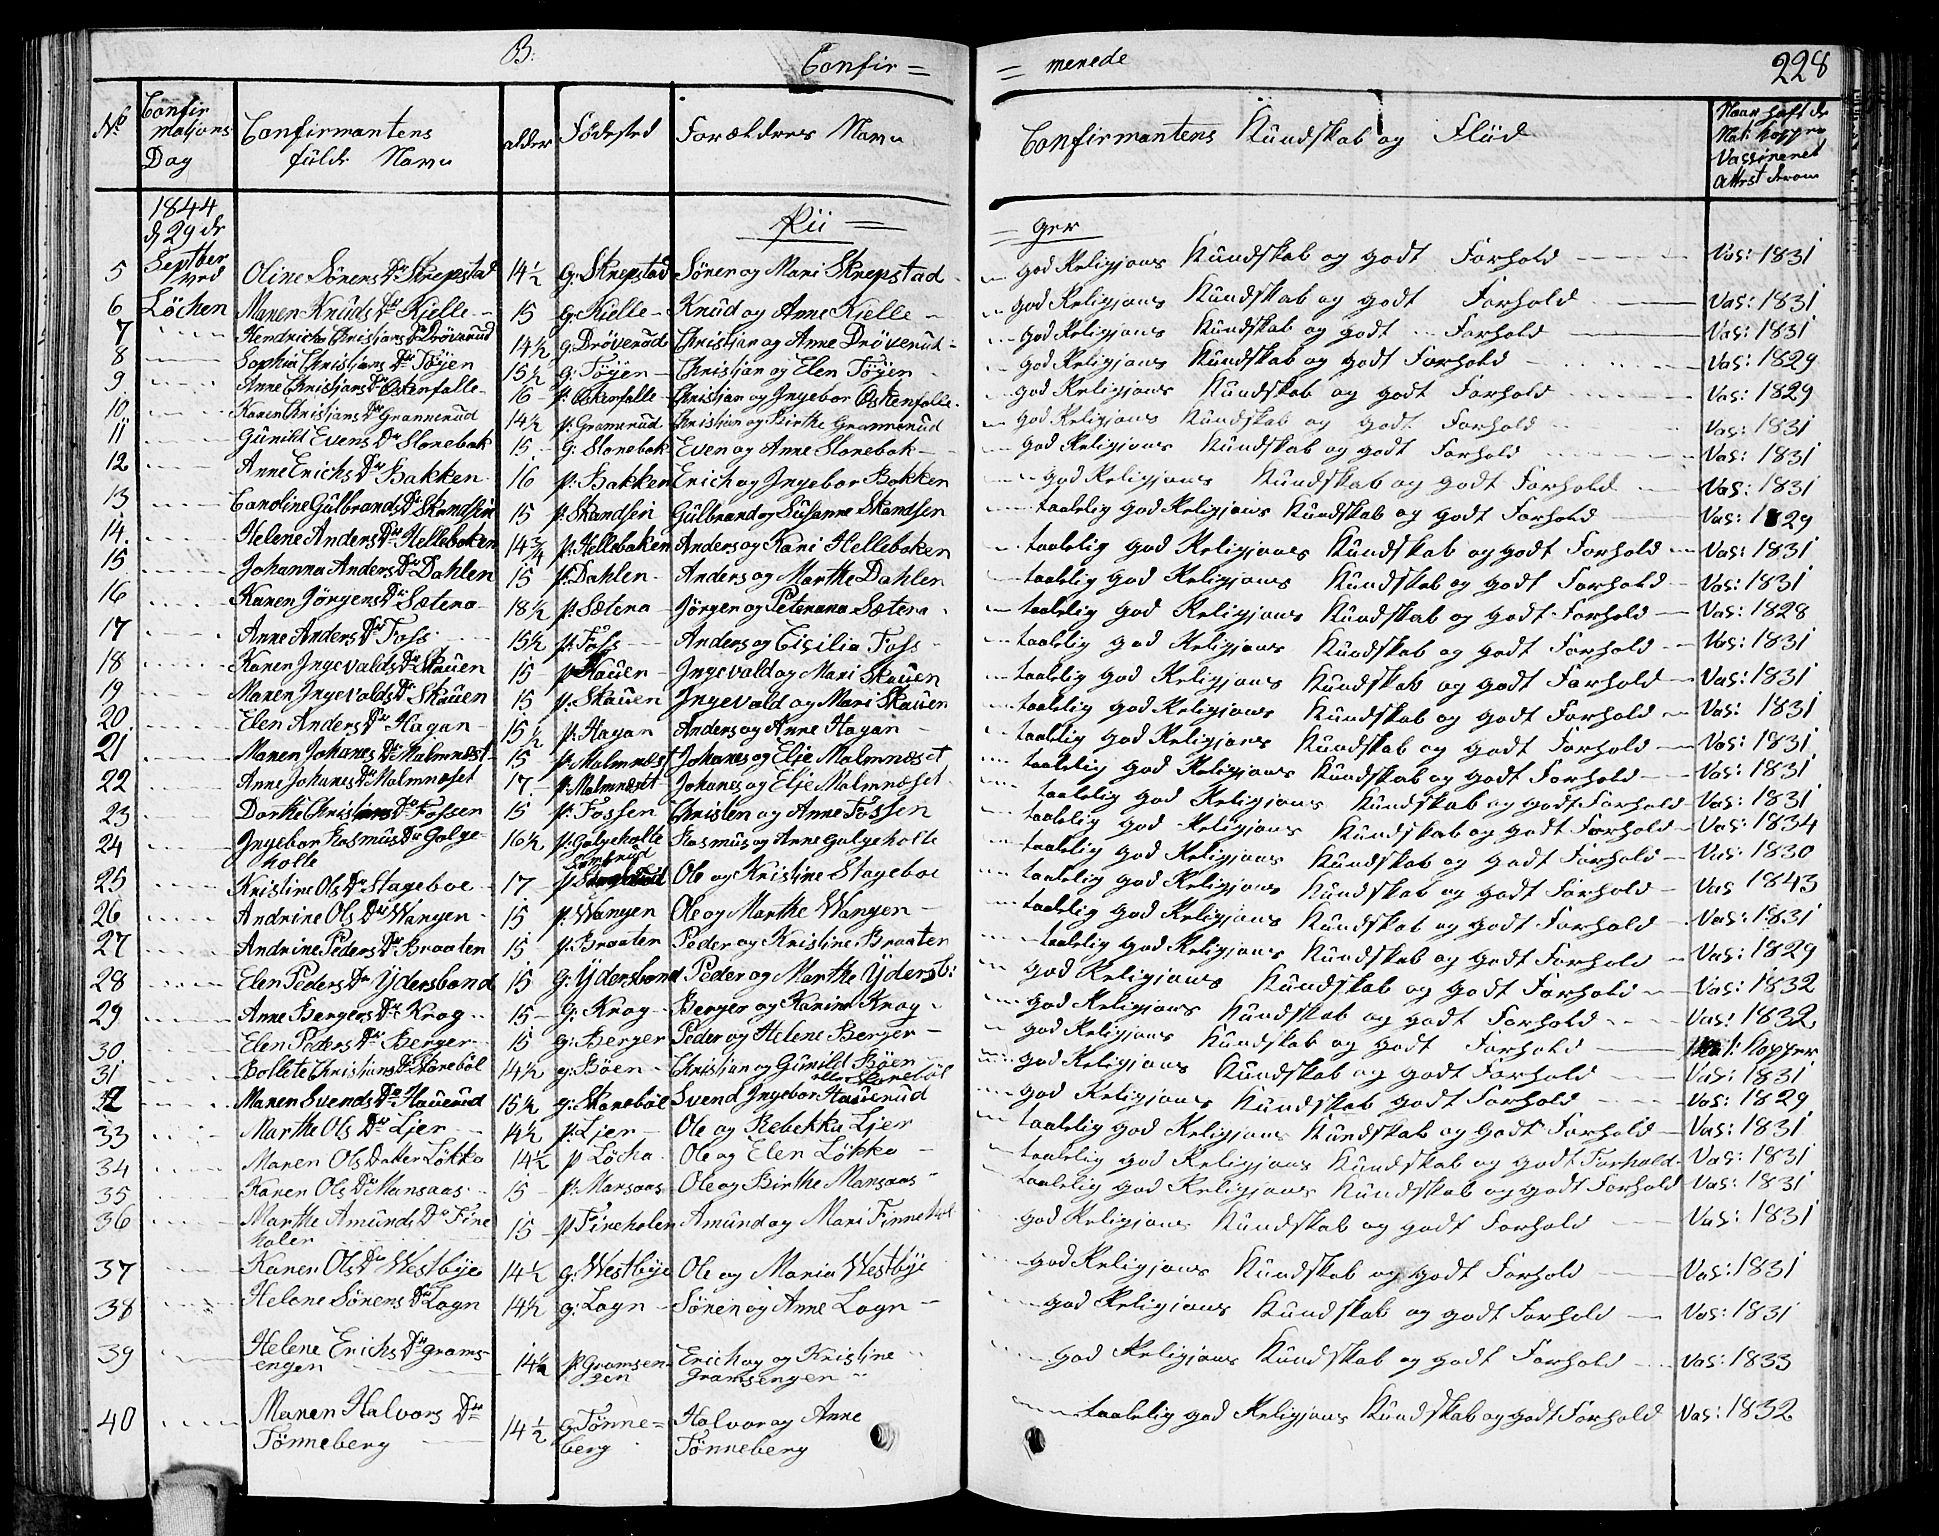 B. Confir = = merede 228
No Confirmatjons Dag Confirmantens fülde Navn alder Födested Forældrers Navn Confirmantens Kundskab og Flüd
1844 Pii = = ger
d 29 de
5 Septber Oline Sörens Dtr Skrepstad 14½ g: Skrepstad Sören og Mari Skrepstad god Religjons Kundskab og godt Forhold Vas: 1831
6 Löchen Maren Knüds Dtr Kjelle 15 g: Kjelle Knüd og Anne Kjelle god Religjons Kundskab og godt Forhold Vas: 1831
7 Hendriche Christjans Dtr Dröverüd 14½ g: Dröverüd Christjan og Anne Dröverüd god Religjons Kundskab og godt Forhold Vas: 1831
8 Sophia Christjans Dtr Töyen 15½ g: Töyen Christjan og Elen Töyen god Religjons Kundskab og godt Forhold Vas: 1829
9 Anne Christjans Dtr Ostenfalle 16 p: Ostenfalle Christjan og Ingebor Ostenfalle god Religjons Kundskab og godt Forhold Vas: 1829
10 Karen Christjans Dtr Grannerüd 14½ p: Grannerüd Christjan og Birthe Grannerüd god Religjons Kundskab og godt Forhold Vas: 1831
11 Günild Evens Dtr Slorebak 15 g: Slorebak Even og Anne Slorebak god Religjons Kundskab og godt Forhold Vas: 1831
12 Anne Erichs Dtr Bakken 16 p: Bakken Erich og Ingebor Bakken god Religjons Kundskab og godt Forhold Vas: 1831
13 Caroline Gülbrands Dtr Skandsen 15 p: Skandsen Gülbrand og Susanne Skandsen taalelig god Religjons Kundskab og godt Forhold Vas: 1829
14. Helene Anders Dtr Helleboken 14¾ p: Helleboken Anders og Kari Helleboken taalelig god Religjons Kundskab og godt Forhold Vas: 1831
15 Johanna Anders Dtr Dahlen 15 p: Dahlen Anders og Marthe Dahlen taalelig god Religjons Kundskab og godt Forhold Vas: 1831
16 Karen Jörgens Dtr Sætera 18½ p: Sætera Jörgen og Peternna Sætera taalelig god Religjons Kundskab og godt Forhold Vas: 1828
17 Anne Anders Dtr Foss 15½ p: Foss Anders og Cicilia Foss taalelig god Religjons Kundskab og godt Forhold Vas: 1831
18 Karen Ingevalds Dtr Skaüen 15 p: Skaüen Ingevald og Mari Skaüen taalelig god Religjons Kundskab og godt Forhold Vas: 1831
19 Maren Ingevalds Dtr Skaüen 15 p: Skaüen Ingevald og Mari Skaüen taalelig god Religjons Kundskab og godt Forhold Vas: 1831
20 Elen Anders Dtr Hagan 15½ p: Hagan Anders og Anne Hagan taalelig god Religjons Kundskab og godt Forhold Vas: 1831
21 Maren Johanes Dtr Malmnæst 15 p: Malmnæst Johanes og Elje Malmnæset taalelig god Religjons Kundskab og godt Forhold Vas: 1831
22 Anne Johanes Dtr Malmnæset 17 p: Malmnæset Johanes og Elje Malmnæset taalelig god Religjons Kundskab og godt Forhold Vas: 1831
23 Dorthe Christians Dtr Fossen 15 p: Fossen Christen og Anne Fossen taalelig god Religjons Kundskab og godt Forhold Vas: 1834
24 Ingebor Rasmüs Dtr Galge- 16½ p: Galgeholte Rasmüs og Anne Galgeholte taalelig god Religjons Kundskab og godt Forhold Vas: 1830
holte
25 Kristine Ols Dtr Stageboe 17 Ole og Kristine Stageboe taalelig god Religjons Kundskab og godt Forhold Vas 1843
26 Andrine Ols Dtr Wangen 15 p: Wangen Ole og Marthe Wangen taalelig god Religjons Kundskab og godt Forhold Vas: 1831
27 Andrine Peders Dtr Braaten 15 p: Braaten Peder og Kristine Braaten taalelig god Religjons Kundskab og godt Forhold Vas: 1829
28 Elen Peders Dtr Ydersbond 15 g: Ydersbond Peder og Marthe Ydersb: god Religjons Kundskab og godt Forhold Vas: 1832
29 Anne Bergers Dtr Krog 15 g: Krog Berger og Karine Krog god Religjons Kundskab og godt Forhold Vas: 1832
30 Elen Peders Dtr Berger 15 g: Berger Peder og Helene Berger god Religjons Kundskab og godt Forhold Nat: Kopper
31 Bollete Christjans Dtr Skoreböl 14½ g: Böen Christjan og Günild Böen god Religjons Kundskab og godt Forhold Vas: 1831
eller Skoreböl
32 Maren Svends Dtr Haüerüd 15½ g: Skoreböl Svend Ingebor Haüerüd god Religjons Kundskab godt Forhold Vas: 1829
33 Marthe Ols Dtr Ljer 14½ p: Ljer Ole og Rebekka Ljer taalelig god Religjons Kundskab og Godt Forhold Vas: 1831
34 Maren Ols Datter Lökka 14½ p Löcha Ole og Elen Lökka taalelig god Religjons Kundskab og godt Forhold Vas: 1831
35 Karen Ols Dtr Mansaas 15 p: Mansaas Ole og Birthe Mansaas taalelig god Religjons Kundskab og godt Forhold Vas: 1831
36 Marthe Amünds Dtr Fine 15 p: Fineholen Amünd og Mari Finnehol god Religjons Kundskab og godt Forhold Vas: 1831
holen
37 Karen Ols Dtr Westbÿe 14½ g: Westbÿe Ole og Maria Westbÿe god Religjons Kundskab og godt Forhold Vas: 1831
38 Helene Sörens Dtr Logn 14½ g: Logn Sören og Anne Logn god Religjons Kundskab og godt Forhold Vas: 1831
39 Helene Erichs Dtr Grams- 14½ p: Gramsen- Erich og Kristine god Religjons Kundskab og godt Forhold Vas: 1833
engen gen Gramsengen
40 Maren Halvors Dtr 14½ g: Tönne= Halvor og Anne taalelig god Religjons Kundskab og godt Forhold Vas: 1832
Tönneberg berg Tönneberg